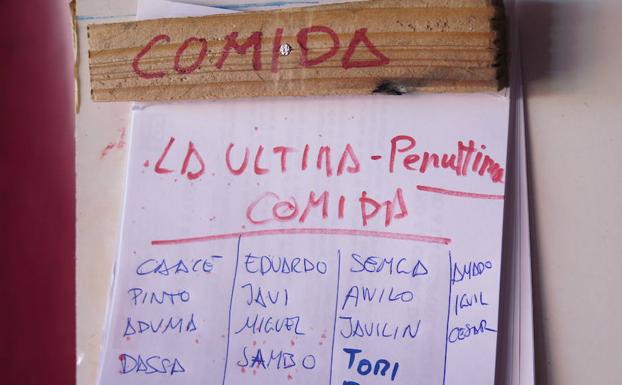 COMIDA
LA ULTIMA - Penultima
COMIDA
CAACÉ EDUARDO SEMGA AMADO
PINTO JAVI AWILO IGUIL
ADUMA MIGUEL JAVILIN CESAR
DASSA SAMBO TORI